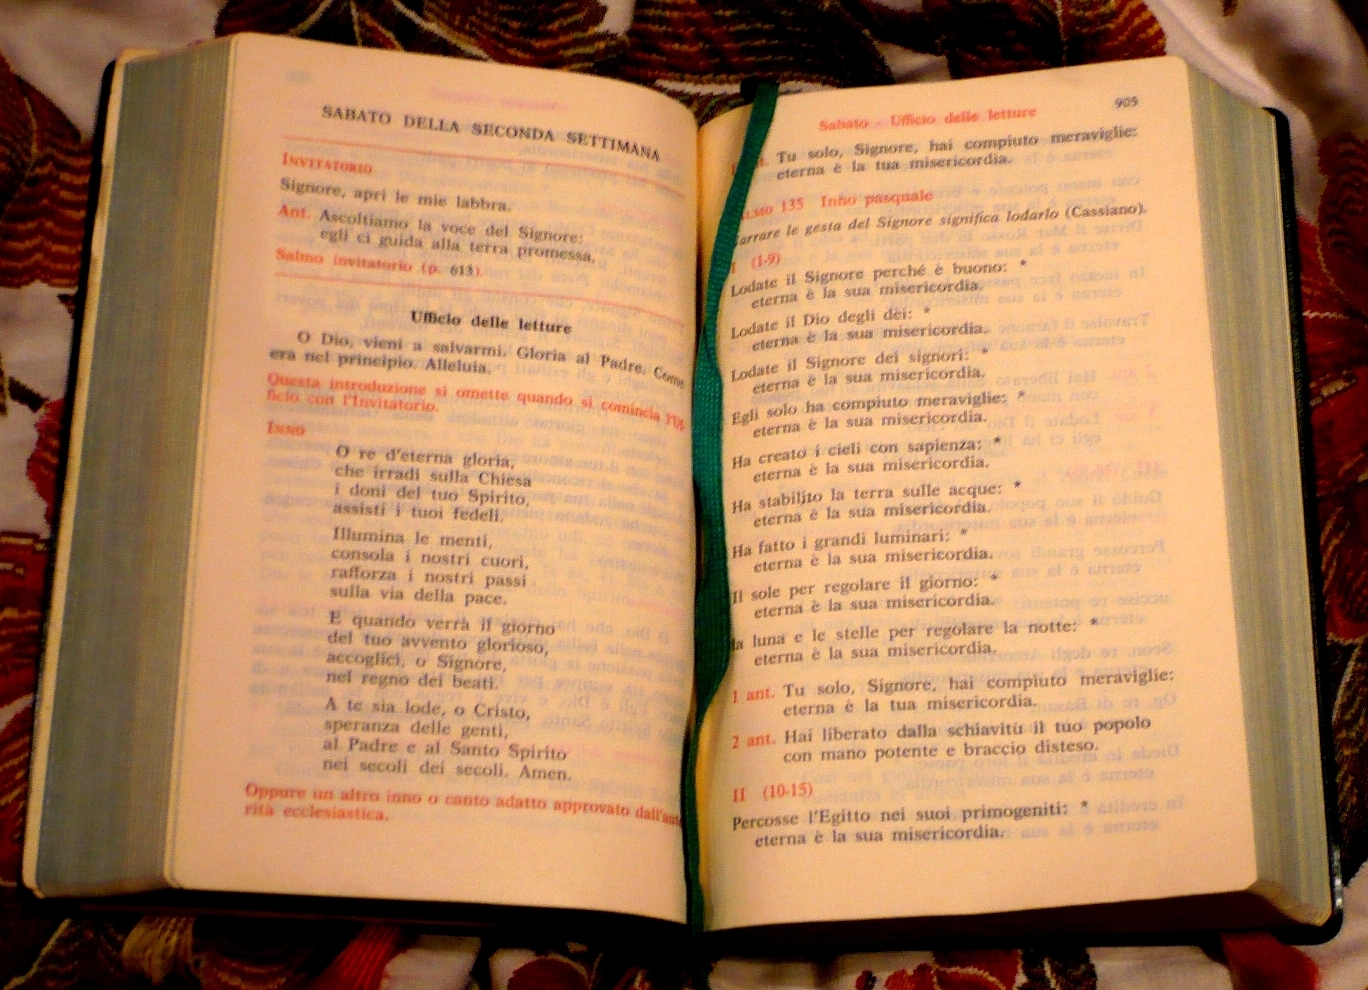 SABATO DELLA SECONDA SETTIMANA
INVITATORIO
Signore, apri le mie labbra.
Ant. Ascoltiamo la voce del Signore:
egli ci guida alla terra promessa.
Salmo invitatorio (p. 613).
Ufficio delle letture
O Dio, vieni a salvarmi. Gloria al Padre. Come
era nel principio. Alleluia.
Questa introduzione si omette quando si comincia l'Uf-
ficio con l'Invitatorio.
INNO
O re d'eterna gloria,
che irradi sulla Chiesa
i doni del tuo Spirito,
assisti i tuoi fedeli.
Illumina le menti,
consola i nostri cuori,
rafforza i nostri passi
sulla via della pace.
E quando verrà il giorno
del tuo avvento glorioso,
accoglici, o Signore,
nel regno dei beati.
A te sia lode, o Cristo,
speranza delle genti,
al Padre e al Santo Spirito
nei secoli dei secoli. Amen.
Oppure un altro inno o canto adatto approvato dall'auto
rità ecclesiastica.
Sabato - Ufficio delle letture 905
Tu solo, Signore, hai compiuto meraviglie:
eterna è la tua misericordia.
135 Inno pasquale
arrare le gesta del Signore significa lodarlo (Cassiano).
I (1-9)
Lodate il Signore perché è buono: *
eterna è la sua misericordia.
Lodate il Dio degli dèi: *
eterna è la sua misericordia.
Lodate il Signore dei signori: *
eterna è la sua misericordia.
Egli solo ha compiuto meraviglie: *
eterna è la sua misericordia.
Ha creato i cieli con sapienza: *
eterna è la sua misericordia.
Ha stabilito la terra sulle acque: *
eterna è la sua misericordia.
Ha fatto i grandi luminari: *
eterna è la sua misericordia.
Il sole per regolare il giorno: *
eterna è la sua misericordia.
la luna e le stelle per regolare la notte: *
eterna è la sua misericordia.
1 ant. Tu solo, Signore, hai compiuto meraviglie:
eterna è la tua misericordia.
2 ant. Hai liberato dalla schiavitù il tuo popolo
con mano potente e braccio disteso.
II (10-15)
Percosse l'Egitto nei suoi primogeniti: *
eterna è la sua misericordia.